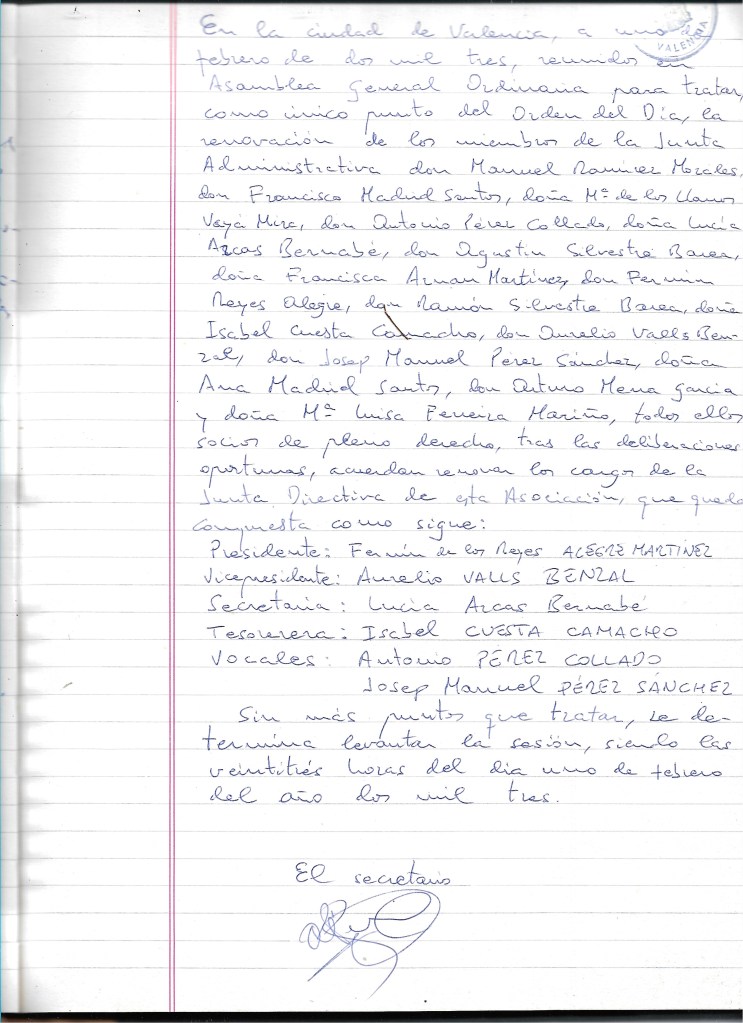 En la ciudad de Valencia, a uno de
febrero de dos mil tres, reunidos en
Asamblea General Ordinaria para tratar,
como único punto del Orden del Día, la
renovación de los miembros de la Junta
Administrativa don Manuel Ramírez Morales,
don Francisco Madrid Santos, doña Mª de los Llanos
Vayá Mira, don Antonio Pérez Collado, doña Lucía
Arcas Bernabé, don Agustín Silvestre Barea,
doña Francisca Arnan Martínez, don Fermín
Reyes Alegre, don Ramón Silvestre Barea, doña
Isabel Cuesta Camacho, don Aurelio Valls Ben-
zal, don Josep Manuel Pérez Sánchez, doña
Ana Madrid Santos, don Arturo Mena García
y doña Mª Luisa Ferreira Mariño, todos ellos
socios de pleno derecho, tras las deliberaciones
oportunas, acuerdan renovar los cargos de la
Junta Directiva de esta Asociación, que queda
compuesta como sigue:
Presidente: Fermín de los Reyes ALEGRE MARTINEZ
Vicepresidente: Aurelio VALLS BENZAL
Secretaria: Lucía Arcas Bernabé
Tesorerera: Isabel CUESTA CAMACHO
Vocales: Antonio PÉREZ COLLADO
Josep Manuel PÉREZ SÁNCHEZ
Sin más puntos que tratar, se de-
termina levantar la sesión, siendo las
veintitrés horas del día uno de febrero
del año dos mil tres.
El secretario
VALENCIA